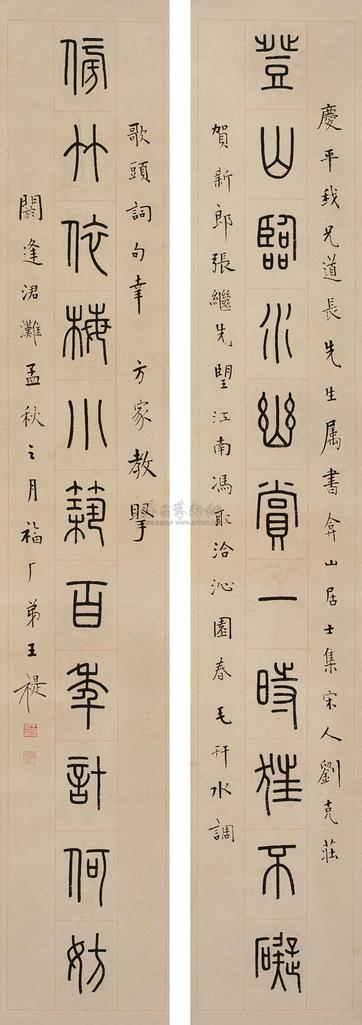 慶平我兄道長先生属書弇山居士集宋人劉克莊
登山臨水幽賞一時狂不礙
賀新郎張繼先望江南馮取洽沁園春毛幵水調
歌頭詞句幸方家教
傍竹依梅小築百年計何妨
閼逢涒灘孟秋之月福厂弟王禔